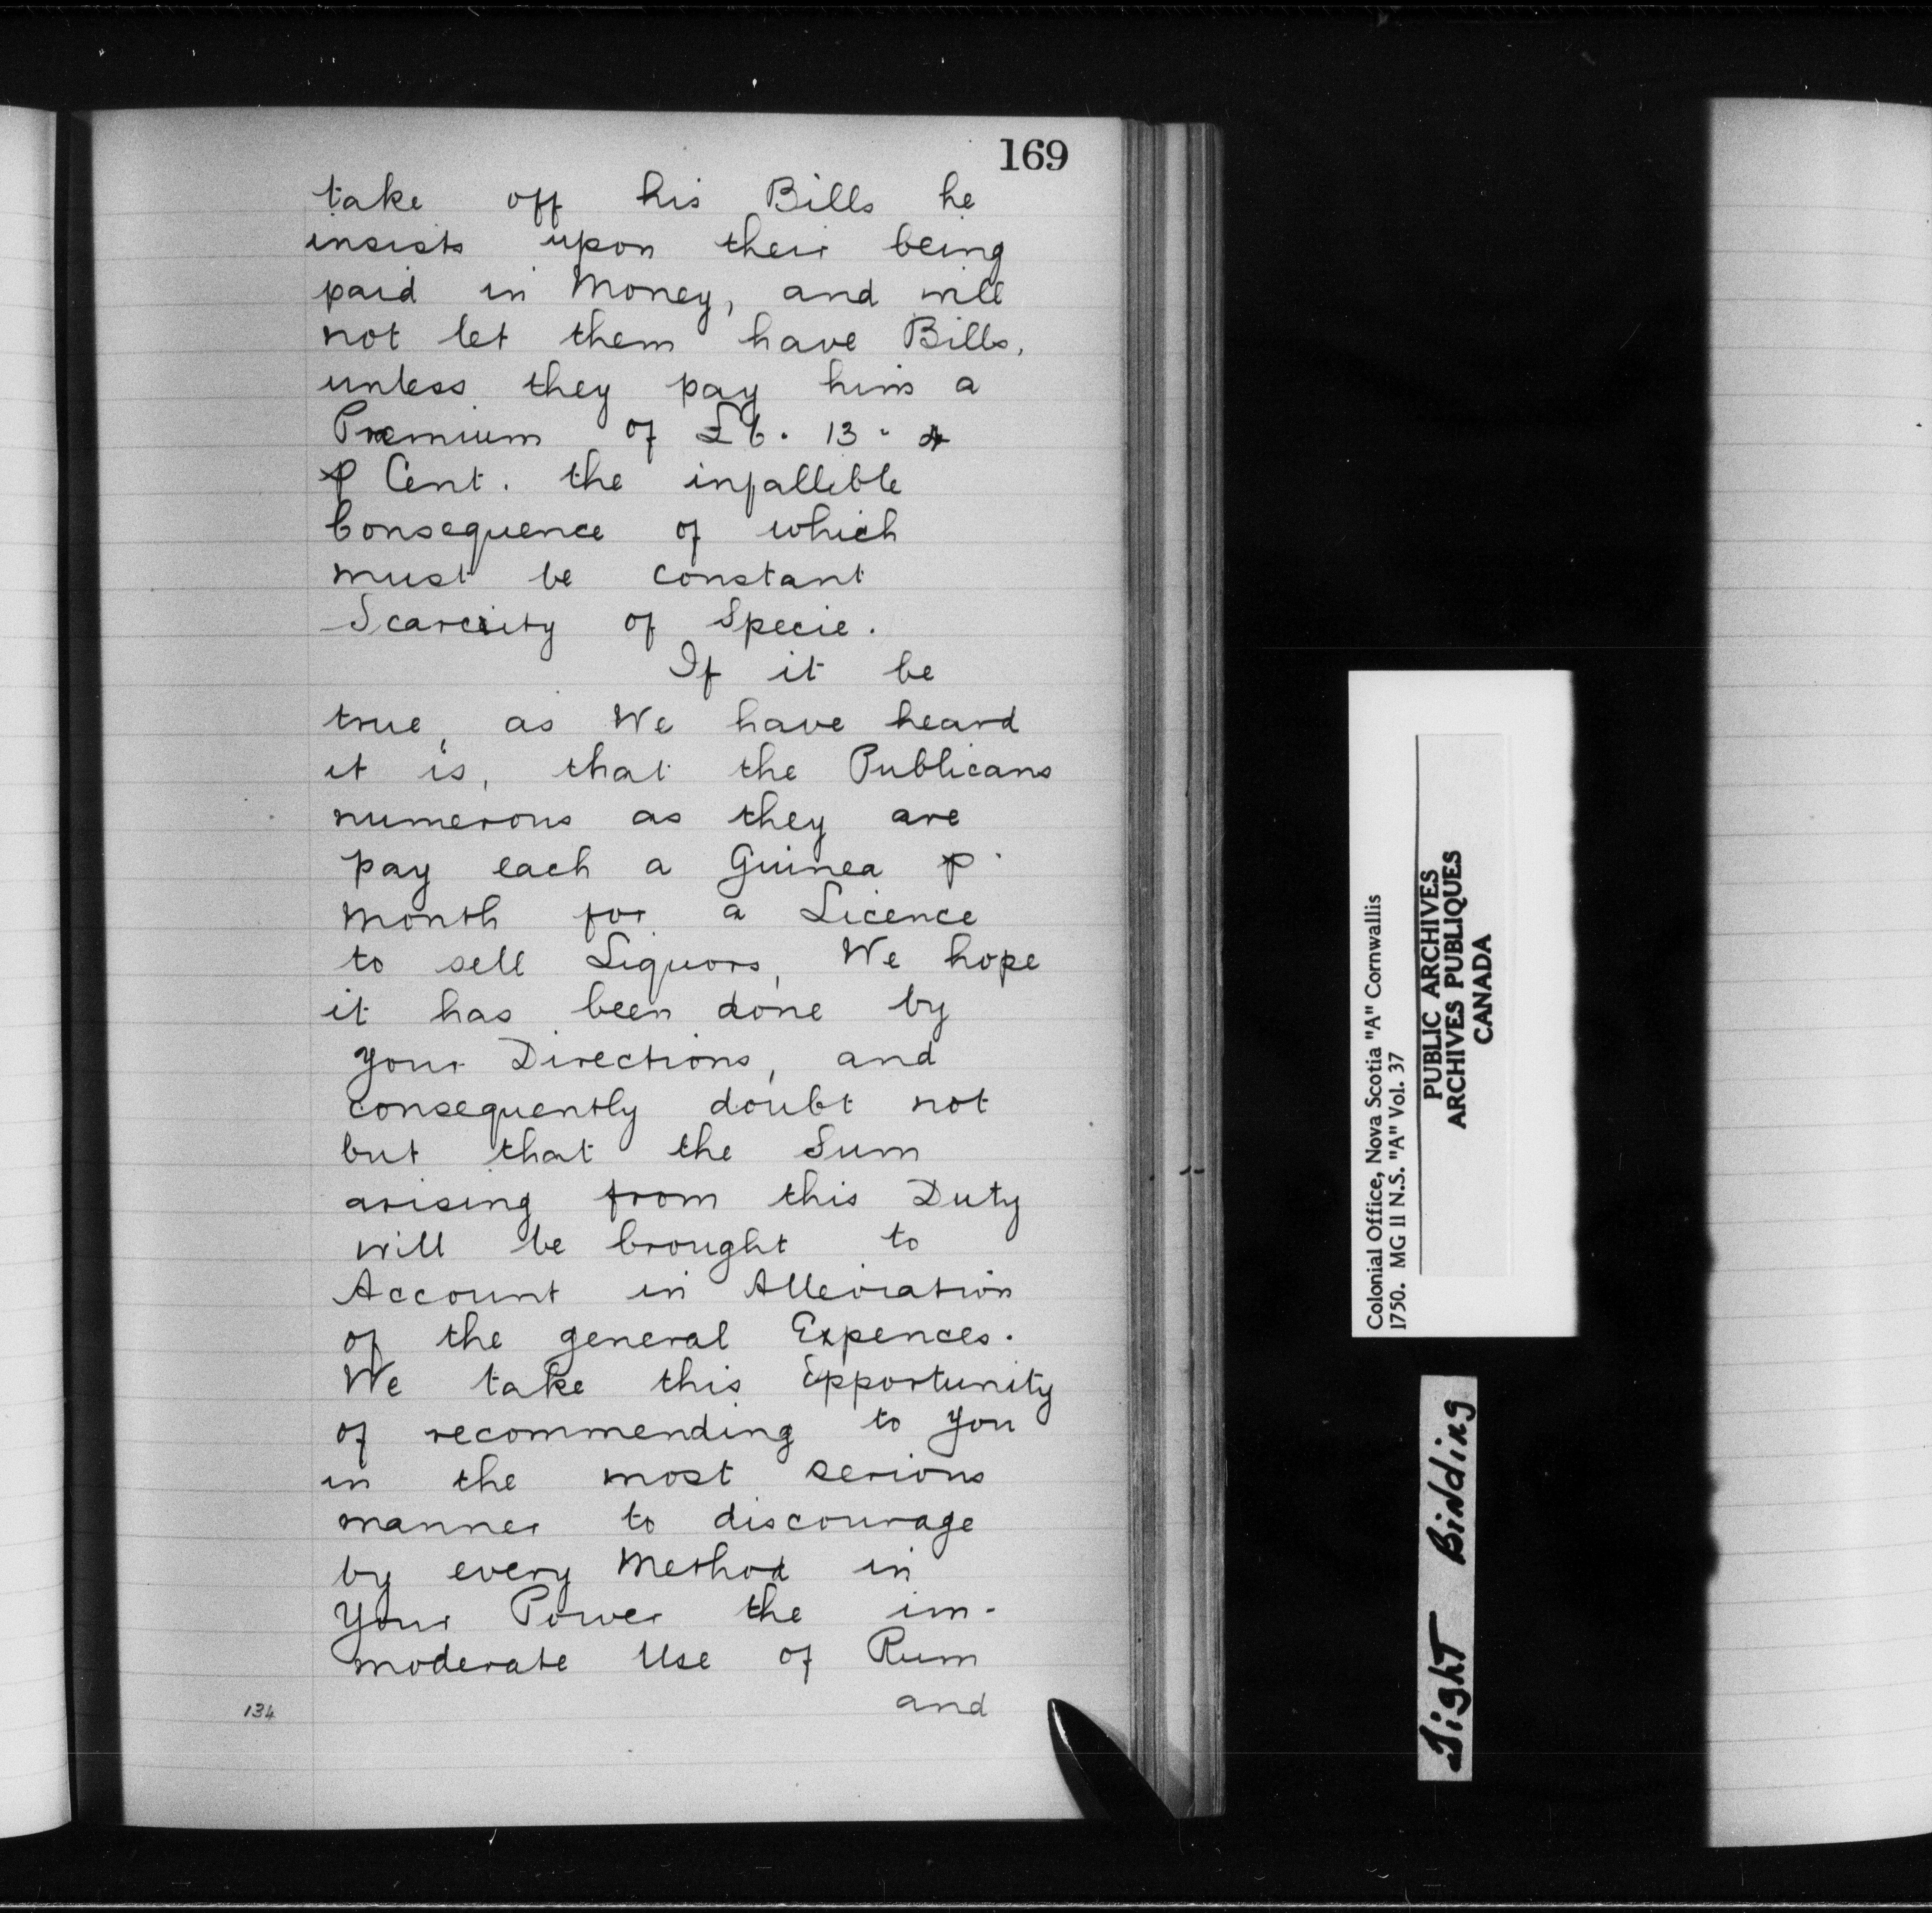 169
take off his Bills he
insists upon their being
paid in Money, and will
not let them have Bills,
unless they pay him a
Premium of £6. 13. 4
⅌ Cent. the infallible
Consequence of which
must be constant
Scarcity of Specie.
If it be
true, as We have heard
it is, that the Publicans
numerous as they are
pay each a Guinea ⅌
Month for a Licence
to sell Liquors, We hope
it has been done by
Your Directions, and
consequently doubt not
but that the Sum
arising from this Duty
will be brought to
Account in Alleviation
of the general Expences.
We take this Opportunity
of recommending to You
in the most serious
manner to discourage
by every Method in
Your Power the im-
moderate Use of Rum
and
134
Colonial Office, Nova Scotia "A" Cornwallis
1750. MG 11 N.S. "A" Vol. 37
PUBLIC ARCHIVES
ARCHIVES PUBLIQUES
CANADA
Tight Binding